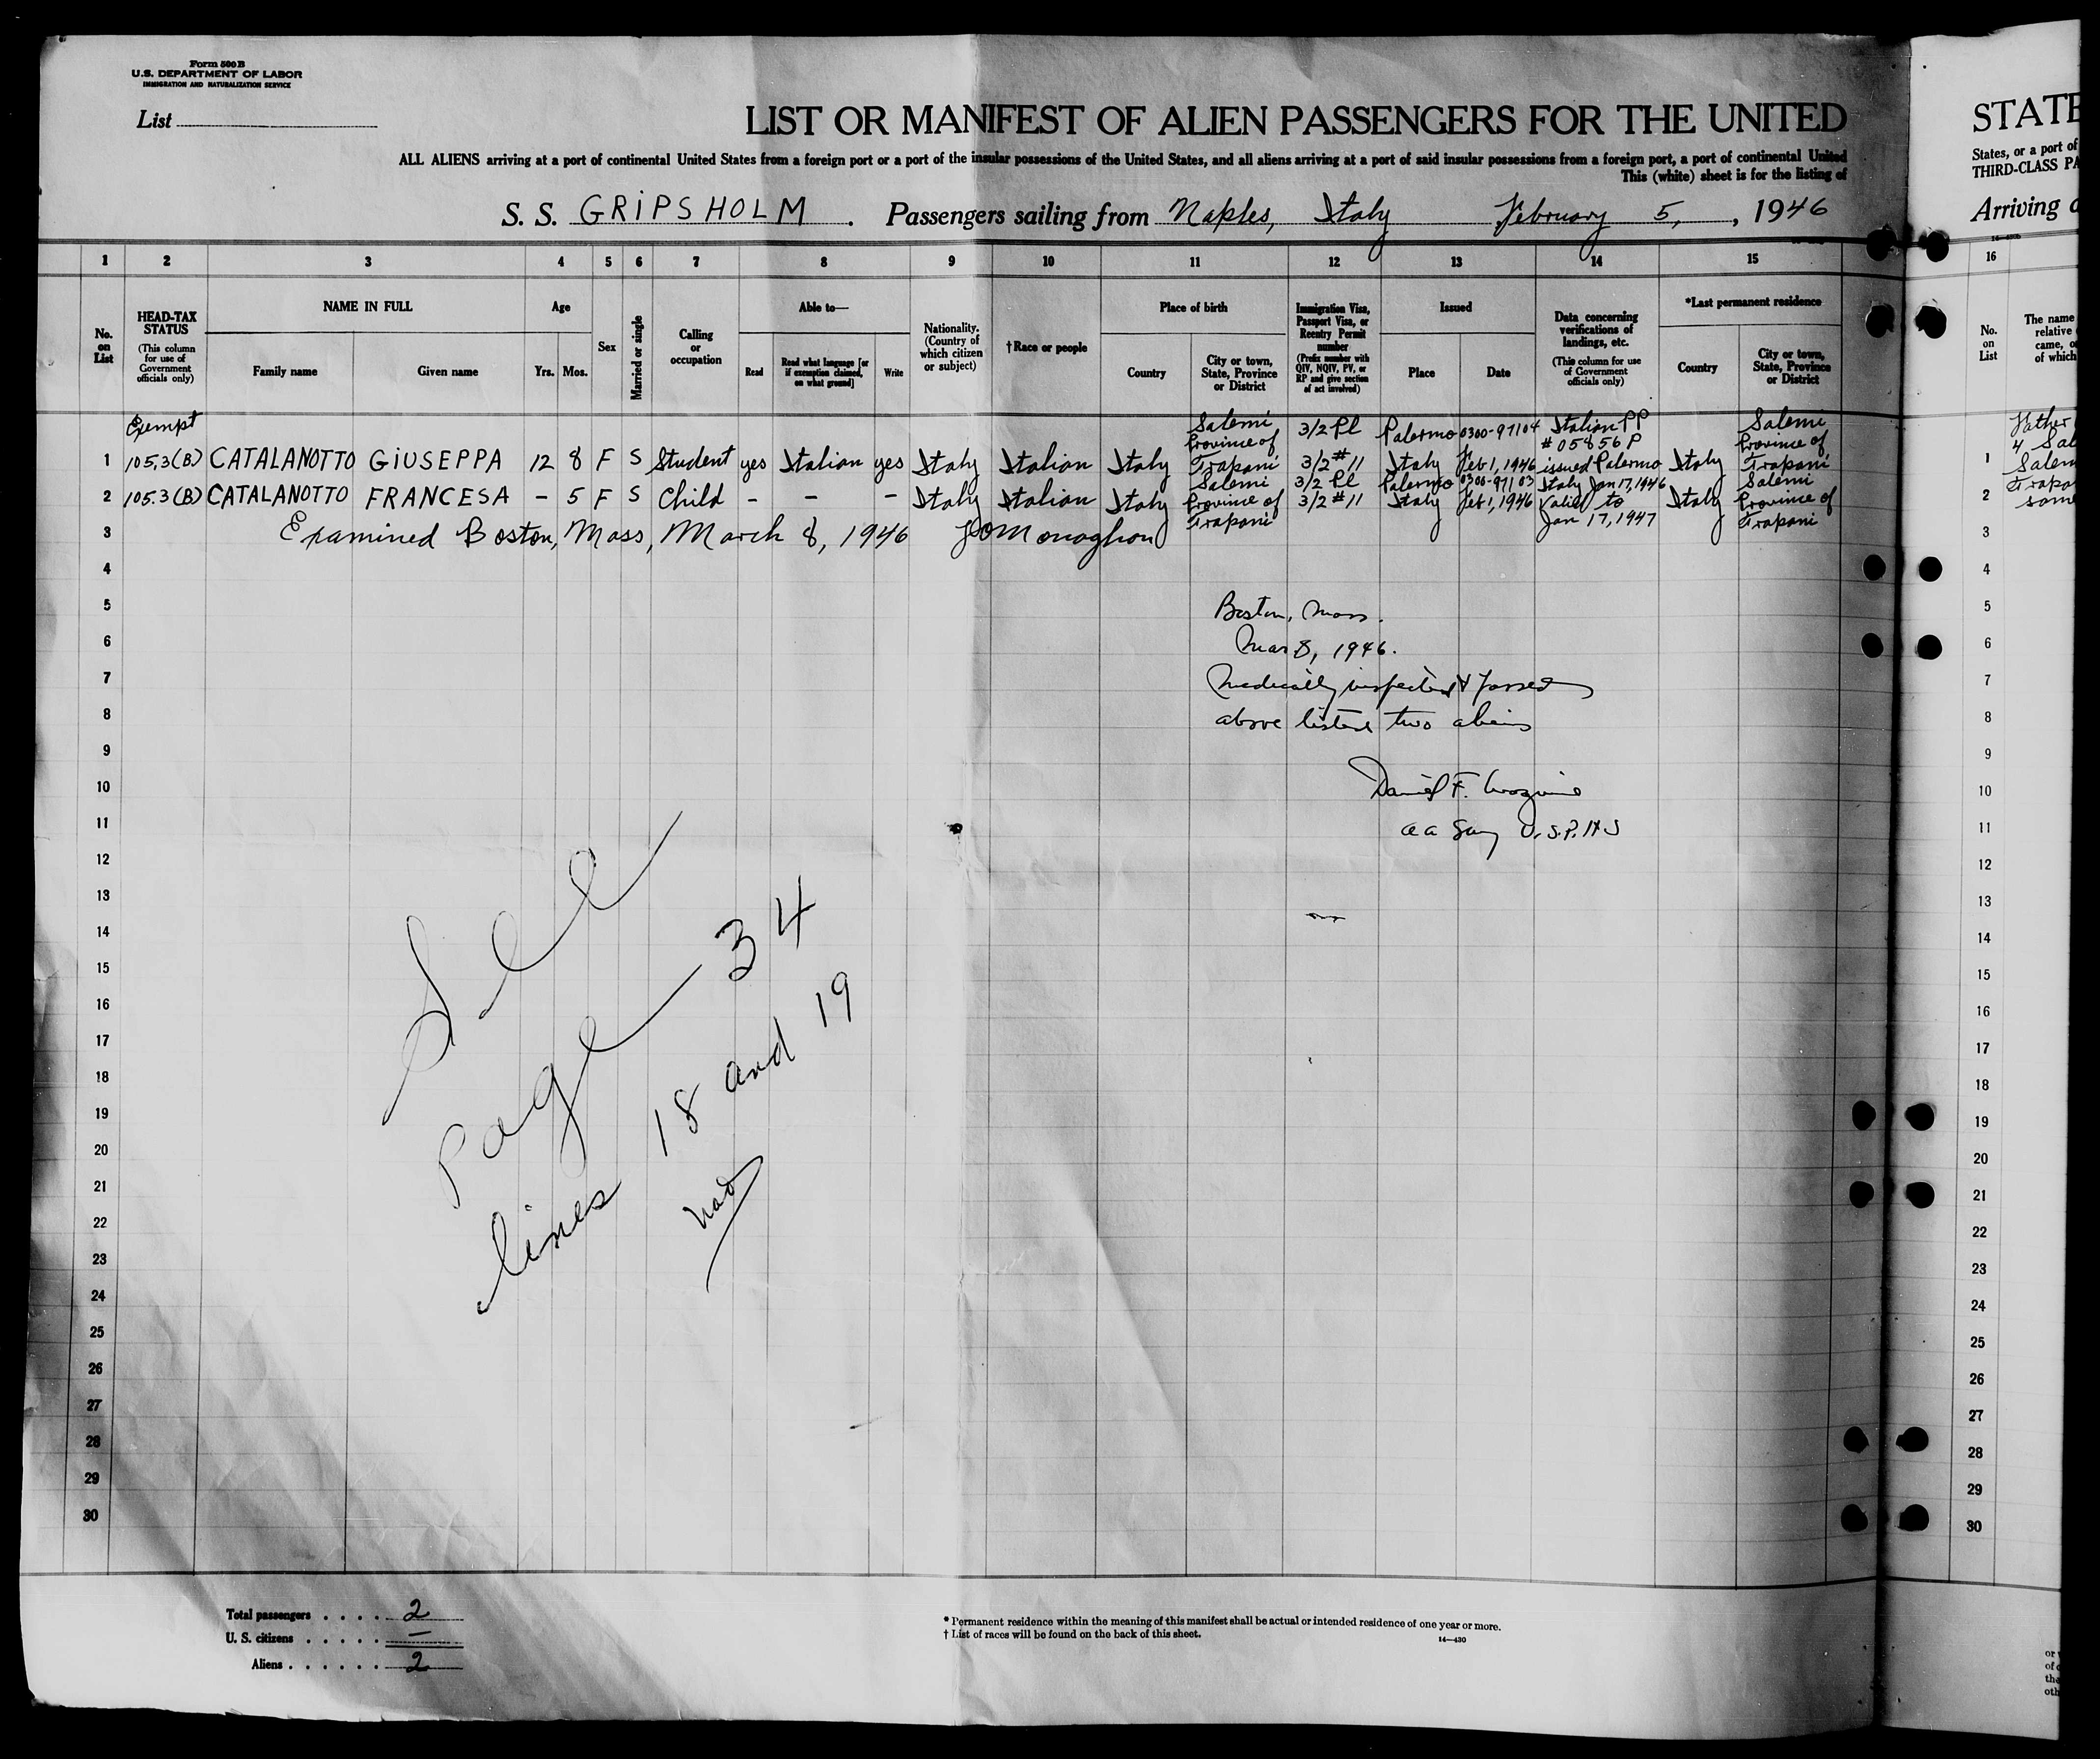 Form 500 B
U.S. DEPARTMENT OF LABOR
IMMIGRATION AND NATURALIZATION SERVICE
List
LIST OR MANIFEST OF ALIEN PASSENGERS FOR THE UNITED
ALL ALIENS arriving at a port of continental United States from a foreign port or a port of the insular possessions of the United States, and all aliens arriving at a port of said insular possessions from a foreign port, a port of continental United
This (white) sheet is for the listing of
S. S. GRIPSHOLM. Passengers sailing from Naples, Italy February 5, , 1946
1 2 3 4 5 6 7 8 9 10 11 12 13 14 15
No. on List
HEAD-TAX STATUS
(This column for use of Government officials only)
NAME IN FULL
Family name
Given name
Age
Yrs. Mos.
Sex
Married or single
Calling or occupation
Able to—
Read
Read what language [or if exemption claimed, on what ground]
Write
Nationality. (Country of which citizen or subject)
†Race or people
Place of birth
Country
City or town, State, Province or District
Immigration Visa, Passport Visa, or Reentry Permit number
(Prefix number with QIV, NQIV, PV, or RP and give section of act involved)
Issued
Place
Date
Data concerning verifications of landings, etc.
(This column for use of Government officials only)
*Last permanent residence
Country
City or town, State, Province or District
Exempt
1 105.3(B) CATALANOTTO GIUSEPPA 12 8 F S Student yes Italian yes Italy Italian Italy Salemi Province of Trapani 3/2 Pl 3/2 #11 Palermo Italy 0300-97104 Feb 1, 1946 Italian PP #05856P issued Palermo Italy Salemi Province of Trapani
2 105.3(B) CATALANOTTO FRANCESA - 5 F S Child - - - Italy Italian Italy Salemi Province of Trapani 3/2 Pl 3/2 #11 Palermo Italy 0300-97103 Feb 1, 1946 Italy Jan 17, 1946 Valid to Jan 17, 1947 Italy Salemi Province of Trapani
3 Examined Boston, Mass, March 8, 1946
4
5
6
7
8
9
10
11
12
13
14
15
16
17
18
19
20
21
22
23
24
25
26
27
28
29
30
Boston, Mass.
Mar 8, 1946.
Medically inspected & passed
above listed two aliens
Daniel F.
U.S.P.H.S
See
Page 34
lines 18 and 19
Total passengers . . . . 2
U. S. citizens . . . . . —
Aliens . . . . . . 2
* Permanent residence within the meaning of this manifest shall be actual or intended residence of one year or more.
† List of races will be found on the back of this sheet.
14—430
STATE
States, or a port of
THIRD-CLASS PA
Arriving
16
No. on List
The name
relative
came, o
of which
Father
1
2
3
4
5
6
7
8
9
10
11
12
13
14
15
16
17
18
19
20
21
22
23
24
25
26
27
28
29
30